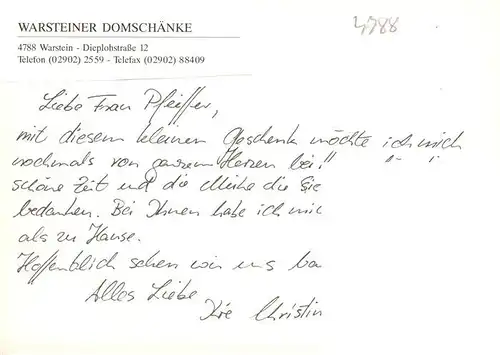 WARSTEINER DOMSCHÄNKE
4788
4788 Warstein - Dieplohstraße 12
Telefon (02902) 2559 - Telefax (02902) 88409
Liebe Frau Pfeiffer,
mit diesem kleinen Geschenk möchte ich mich
nochmals von ganzem Herzen bei " " "
schöne Zeit und die Mühe die Sie
bedanken. Bei Ihnen habe ich mic
als zu Hause.
Hoffentlich sehen wir uns ba
Alles Liebe
Ihre Christin